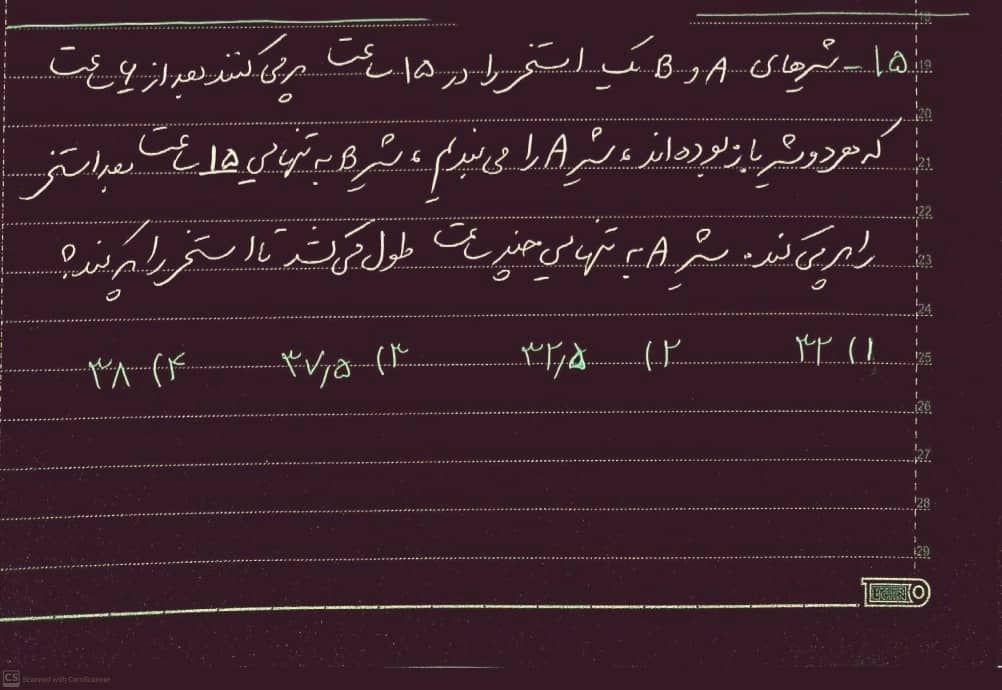 ۱۵- شیرهای A و B یک استخر را در ۱۵ ساعت پر می کنند بعد از ۶ ساعت
که هر دو شیر باز بوده اند، شیر A را می بندیم، شیر B به تنهایی ۱۵ ساعت بعد استخر
را پر می کند. شیر A به تنهایی چند ساعت طول می کشد تا استخر را پر کند؟
۱) ۳۲ ۲) ۳۲٫۵ ۳) ۳۷٫۵ ۴) ۳۸
19
20
21
22
23
24
25
26
27
28
29
CS Scanned with CamScanner